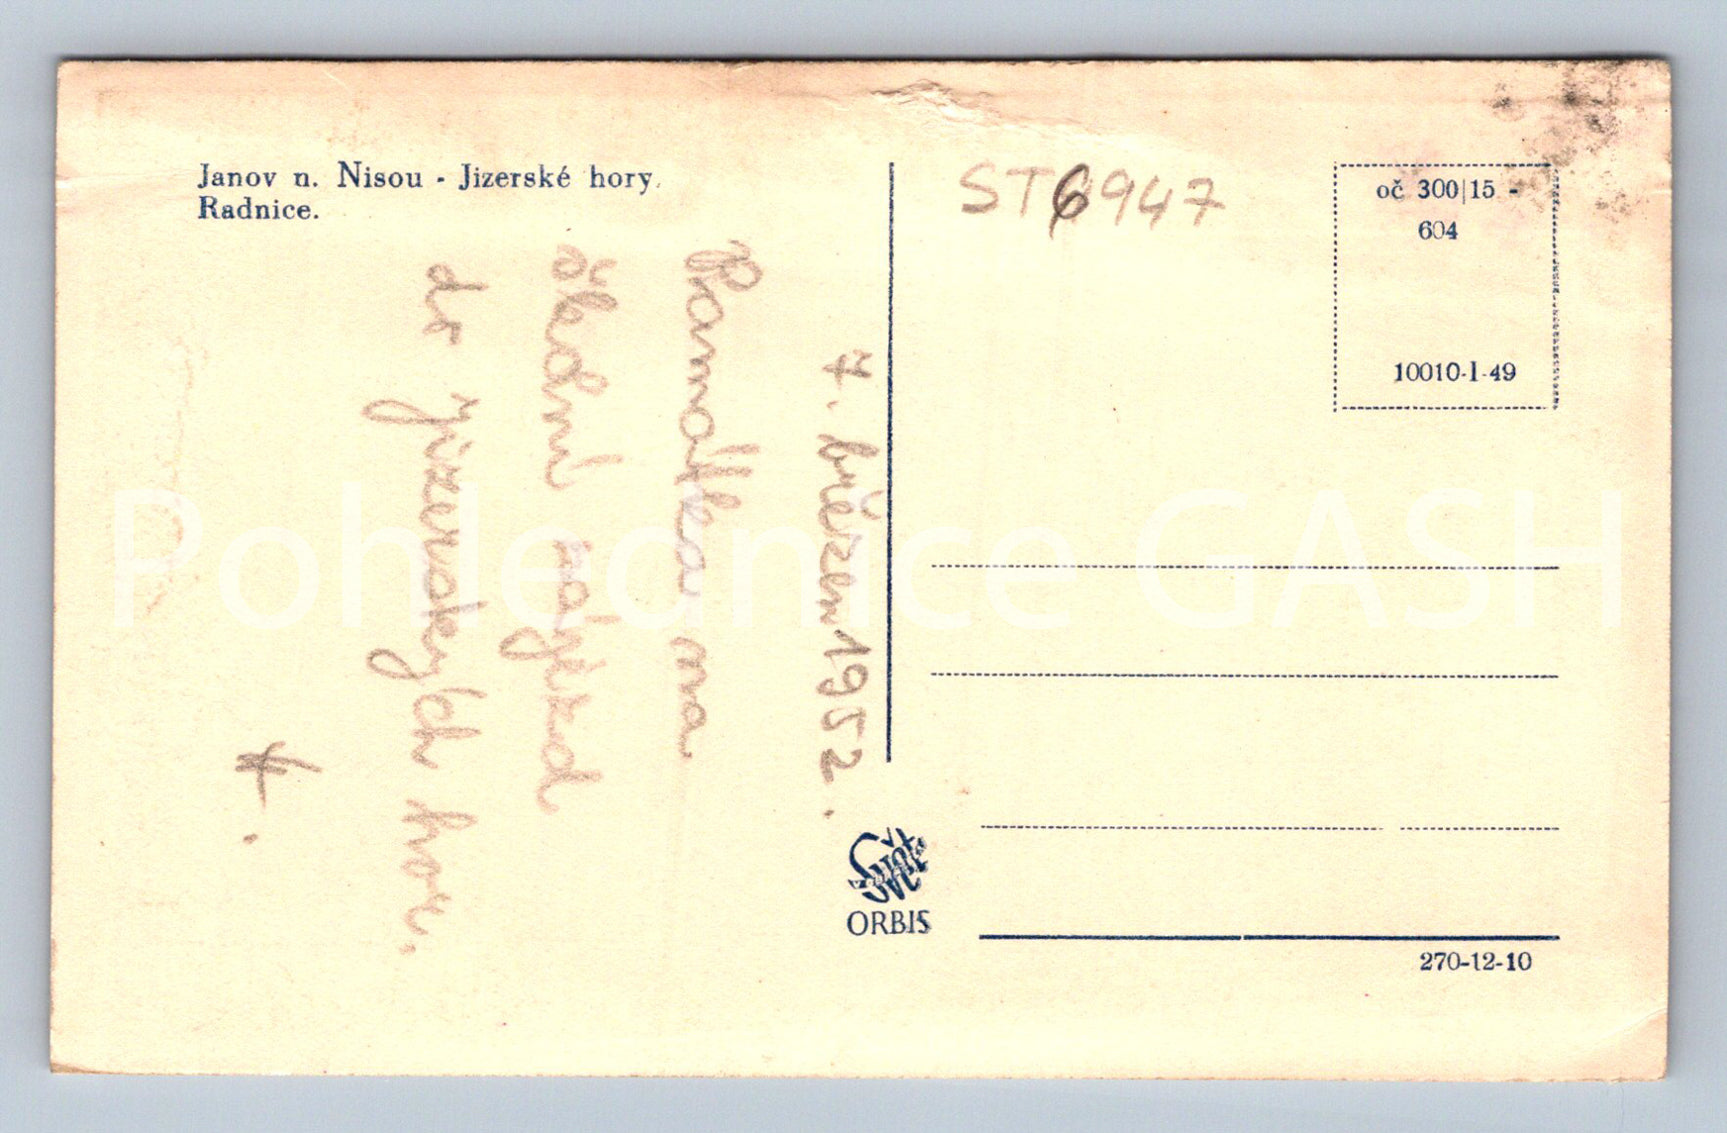 Janov n. Nisou - Jizerské hory.
Radnice.
ST6947
oč 300|15 -
604
10010-I-49
7. březen 1952.
Pamnátka na
školní zájezd
do jizerskejch hor.
ORBIS
270-12-10
Pohlednice GASH